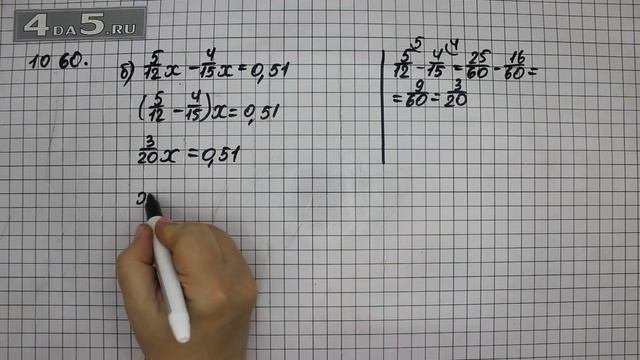 4DA5.RU
1060.
б) 5/12 x - 4/15 x = 0,51
(5/12 - 4/15) x = 0,51
3/20 x = 0,51
x
5/12 ⁵ - 4/15 ⁴ = 25/60 - 16/60 =
= 9/60 = 3/20